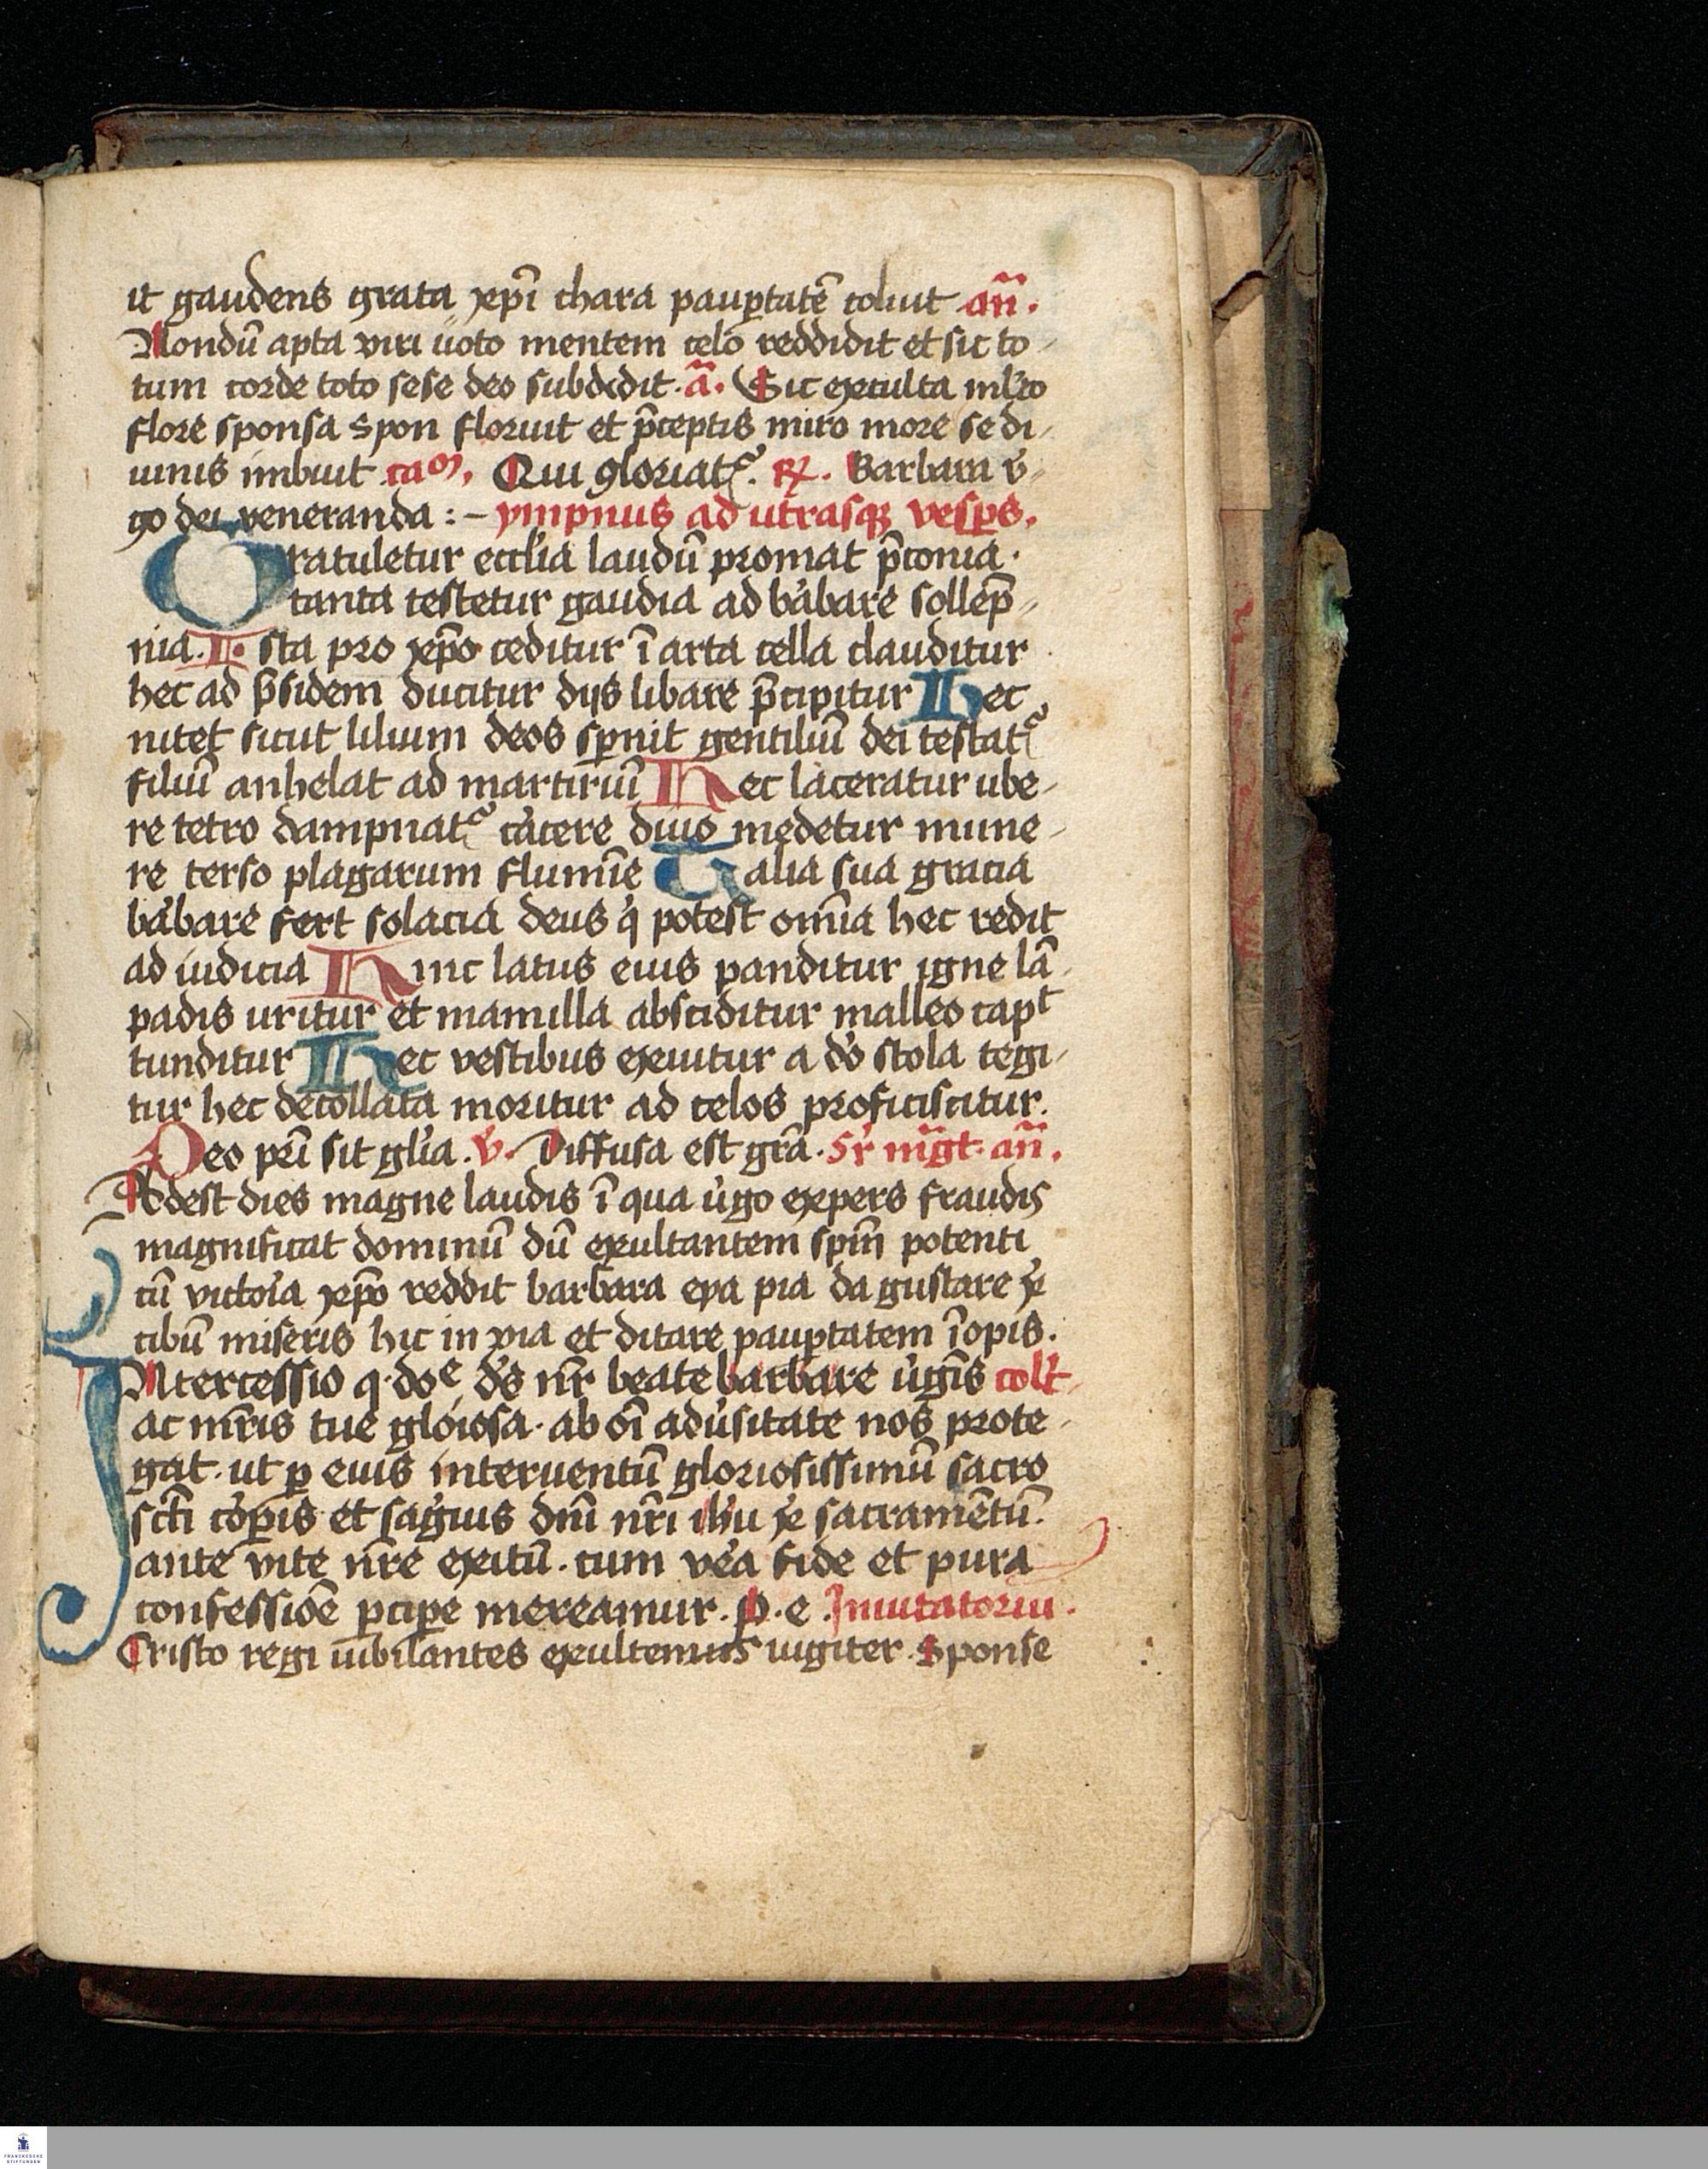 it gaudens grata xp̄i chara paup̄tatē coluit an̄.
Nondū apta viri uoto mentem celo reddidit et sic to
tum corde toto sese deo subdidit. a. Sic exculta
flore sponsa spon floruit et p̄ceptis miro more se di
uinis imbuit cam. Qui gloriat᷑. R. Barbara v̓
go dei veneranda :- ympnus ad utrasqꝫ vesp̄s.
Gratuletur eccl̓ia laudū promat p̄conia.
tanta testetur gaudia ad b̓abare sollēp
nia. Ista pro xp̄o ceditur ī arta cella clauditur
hec ad p̄sidem ducitur dijs libare p̄cipitur Hec
nitet sicut lilium deos sp̄nit gentiliū dei testat᷑
filiū anhelat ad martiriū Hec laceratur ube
re tetro dampnat᷑ c̓acere diuo medetur mune
re terso plagarum flumīe Talia sua gracia
b̓abare fert solacia deus q̓ potest om̄ia hec redit
ad iudicia Hinc latus eius panditur igne lā
padis uritur et mamilla absciditur malleo capᵗ
tunditur Hec vestibus exuitur a do stola tegi
tur hec decollata moritur ad celos proficiscitur.
Deo pr̄i sit gl̓ia. v̓. Diffusa est gr̄a. Sr̓ m̄gt. an̄.
Adest dies magne laudis ī qua u̓go expers fraudis
magnificat dominū dū exultantem sp̄m potenti
cū victor̓ia xp̄o reddit barbara eya pia da gustare xp̄i
cibū miseris hic in via et ditare paup̄tatem īopis.
Intercessio q. doᵉ ds̄ nr̄ beate barbare u̓gīs coll̓t
ac mr̄is tue glor̓iosa. ab oī adu̓sitate nos prote
gat. ut p̱ euis interuentū gloriosissimū sacro
sct̄i cor̓p̱is et sag̓uis dn̄i nr̄i ih̓u xp̄i sacramētū.
ante vite nr̄e exitū. cum ve̓a fide et pura
confessiōe p̱cip̱e mereamur. P. e Inuitatoriu.
Cristo regi iubilantes exultemus iugiter. Sponse
FRANCKESCHE
STIFTUNGEN